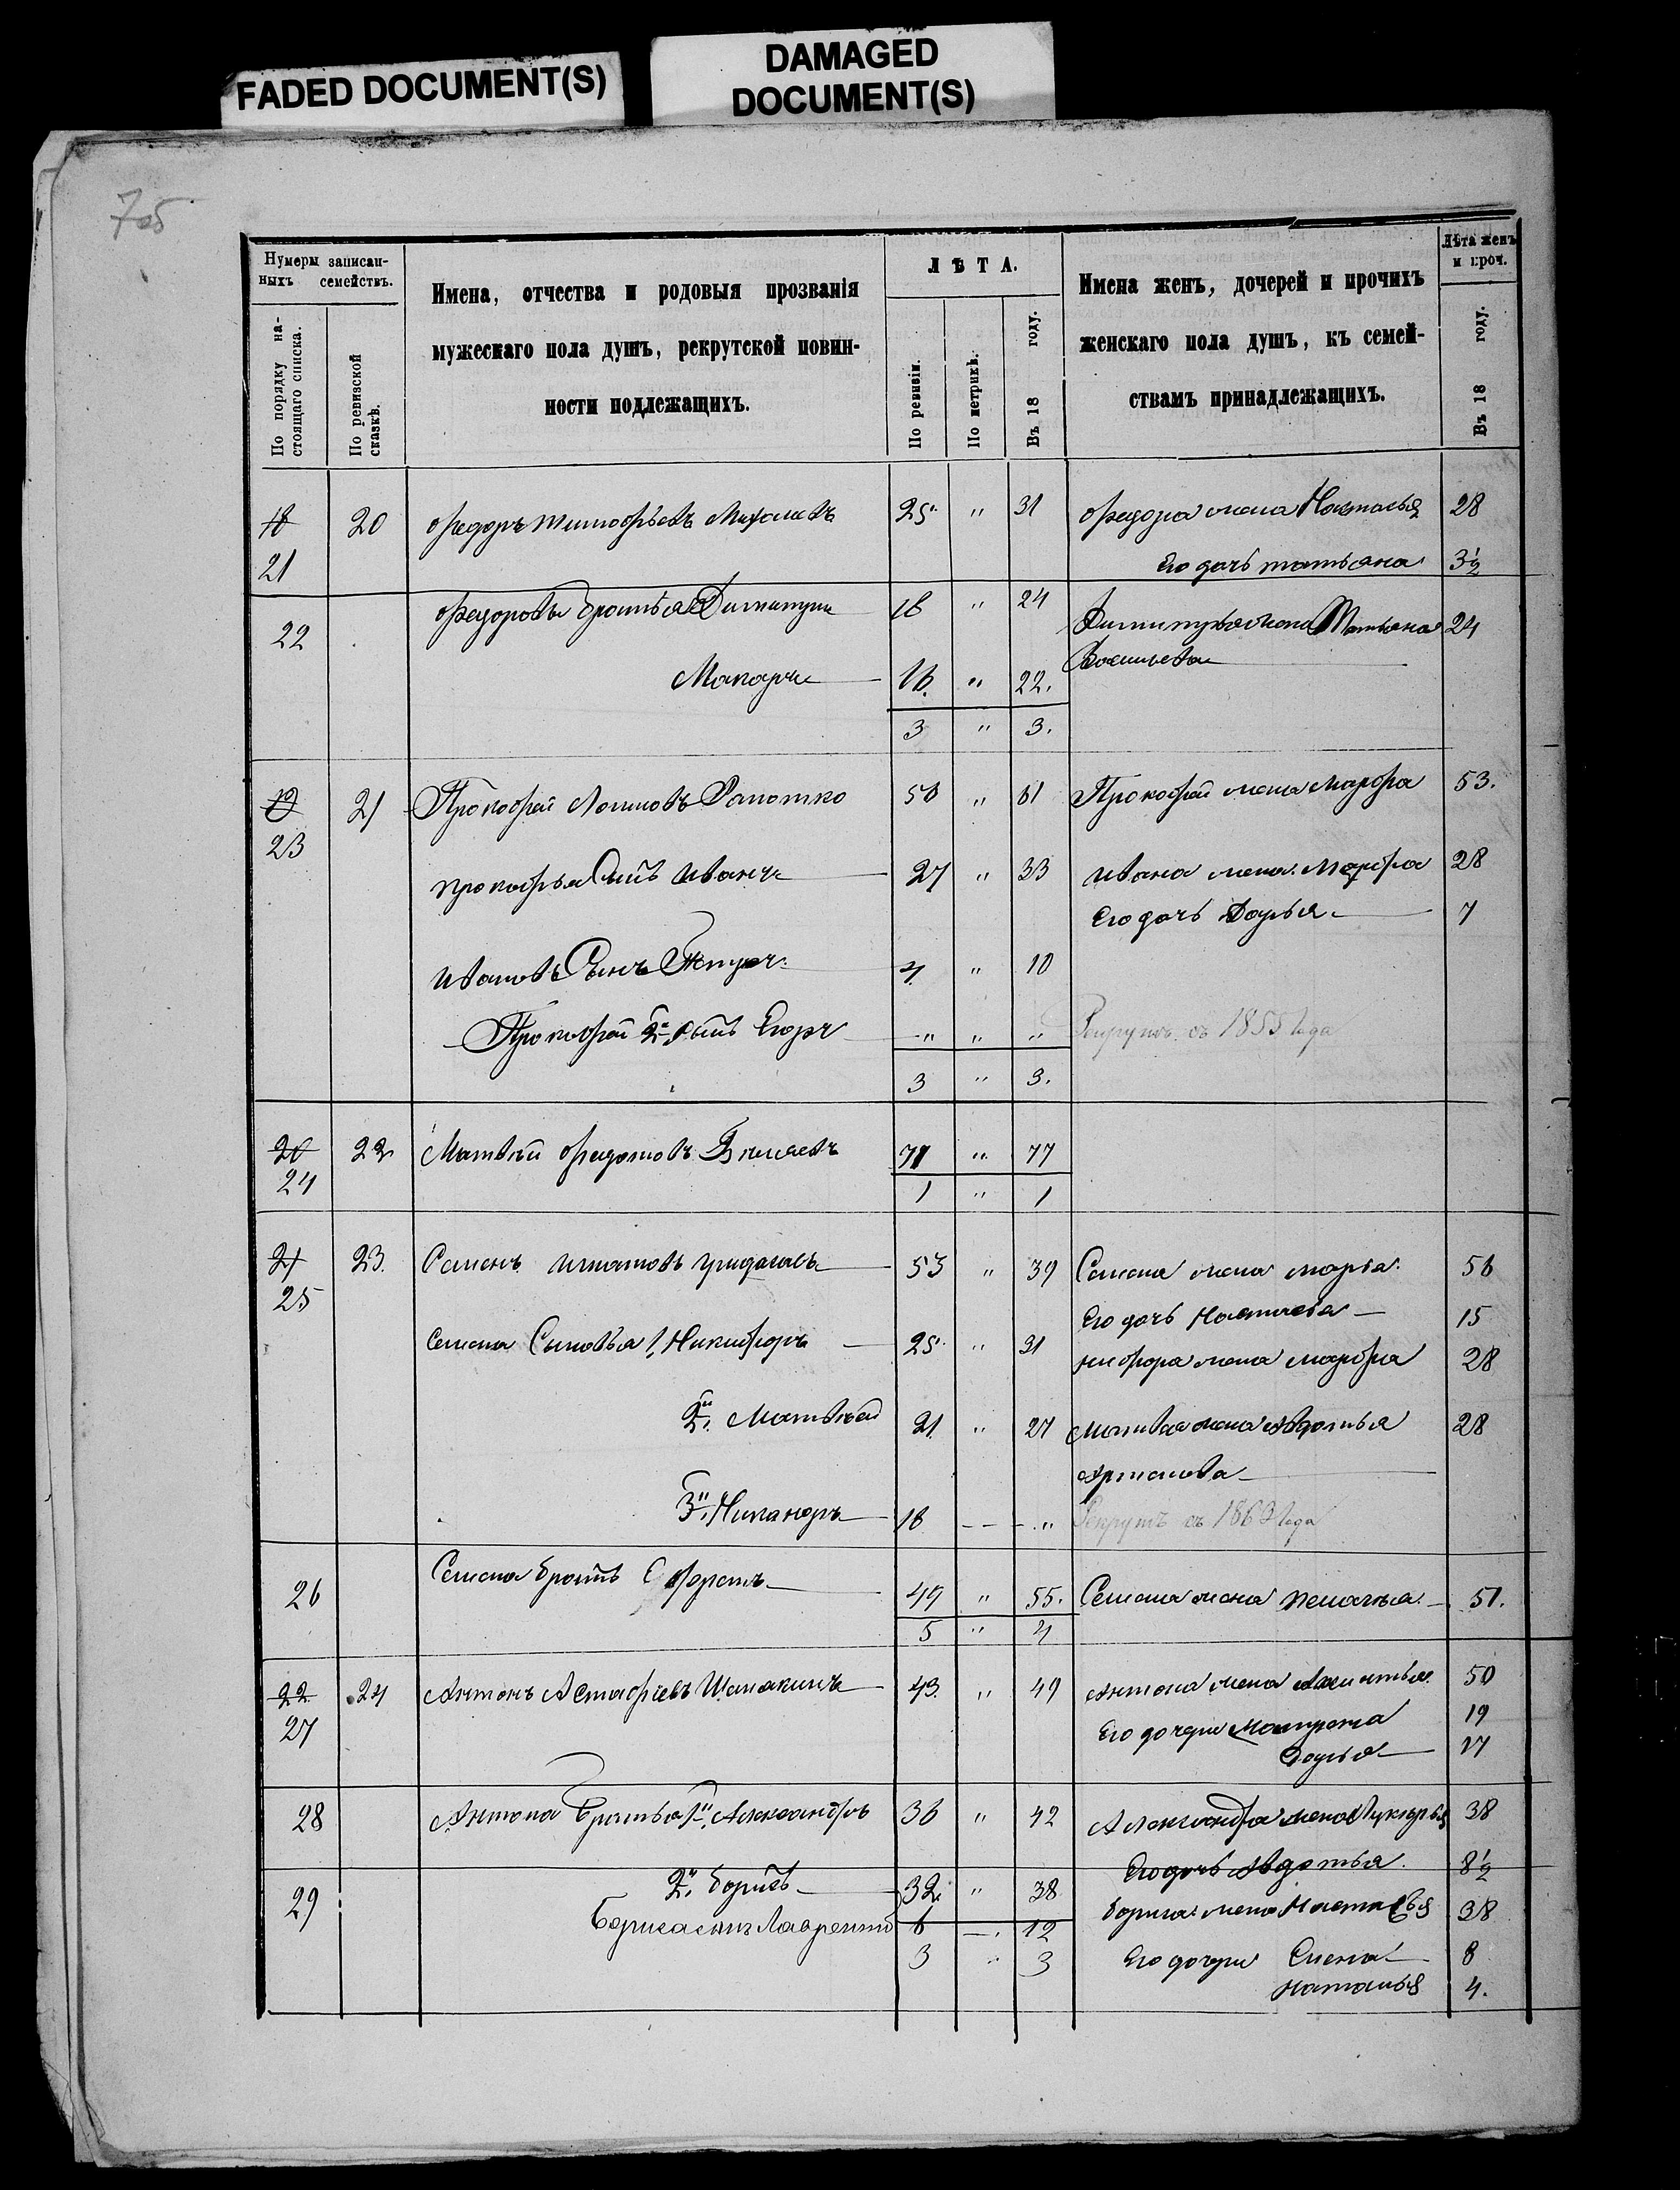 FADED DOCUMENT(S)
DAMAGED
DOCUMENT(S)
705
Нумеры записан-
ныхъ семействъ.
По порядку на-
стоящаго списка.
По ревизской
сказкѣ.
Имена, отчества и родовыя прозванія
мужескаго пола душъ, рекрутской повин-
ности подлежащихъ.
ЛѢТА.
По ревизіи.
По метрикѣ.
Въ 18 году.
Имена женъ, дочерей и прочихъ
женскаго пола душъ, къ семей-
ствамъ принадлежащихъ.
Лѣта женъ
и проч.
Въ 18 году.
18 20 Федоръ тимофѣевъ 25 " 31 Федора жена Наталья 28
21 Его дочь татьяна 3½
22 Федоровы братья Димитри 18 " 24 Димитрья жена Татьяна 24
Васильева
Макаръ 16. " 22.
3 " 3.
19 21 Прокофей Логиновъ 56 " 61 Прокофей жена Марфа 53.
23
прокофья Сынъ Иванъ 27 " 33 ивана жена Марфа 28
Его дочь Дарья 7
ивановъ Сынъ Петръ 4 " 10
Прокофей 2й сынъ Егоръ " " " Рекрутъ съ 1855 года
3 " 3.
20 22 Матвѣй федотовъ 71 " 77
24 1 " 1
21 23. Семенъ игнатовъ 53 " 39 Семена жена марья 56
25 Его дочь Настасья 15
Семена Сыновья 1, Никифоръ 25 " 31 жена марфа 28
2й. Матвѣй 21. " 27 Матвея жена Авдотья 28
3й. Никаноръ 18 " Рекрутъ съ 1863 года
26 Семена братъ Ефремъ 49 " 55. Семена жена пелагея 51.
5 " 4
22 24 Антонъ Астафіевъ Шамакинъ 43. " 49 Антона жена 50
27 Его дочери Матрена 19
Дарья 17
28 Антона братья 1й, Александръ 36 " 42 Александра жена Лукерья 38
Его дочь Авдотья. 8½
29 2й. борисъ 32. " 38 бориса жена Настасья 38
Бориса сынъ Лаврентий 6 12
3 3 Его дочери Елена 8
Наталья 4.